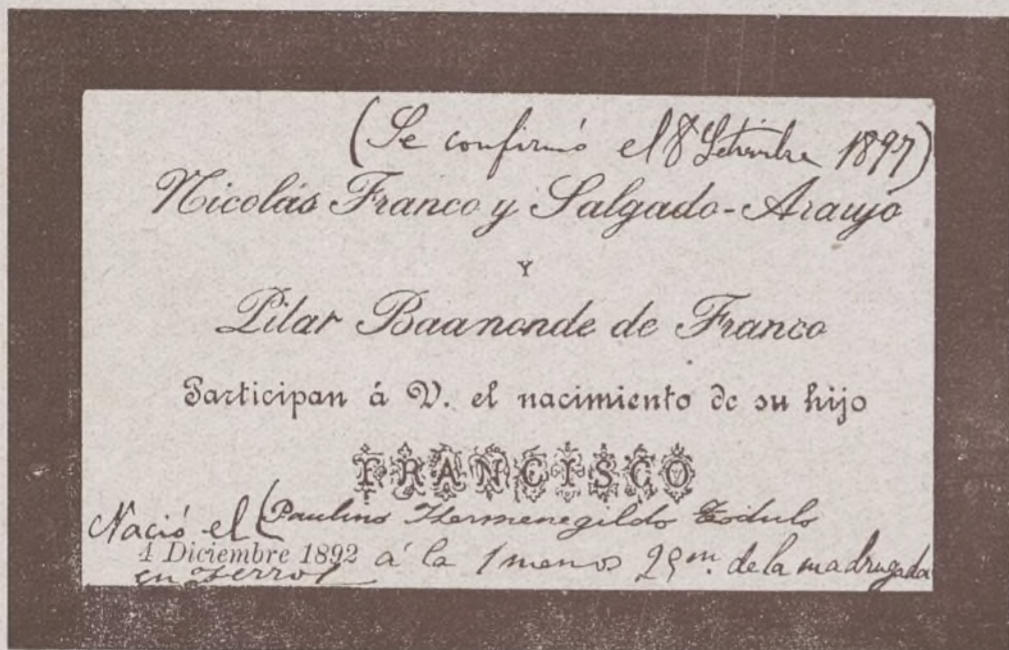 (Se confirmó el 8 Setiembre 1897)
Nicolás Franco y Salgado-Araujo
Y
Pilar Baamonde de Franco
Participan á V. el nacimiento de su hijo
FRANCISCO
Nació el (Paulino Hermenegildo Teódulo
4 Diciembre 1892 á la 1 menos 25 m. de la madrugada
en Ferrol